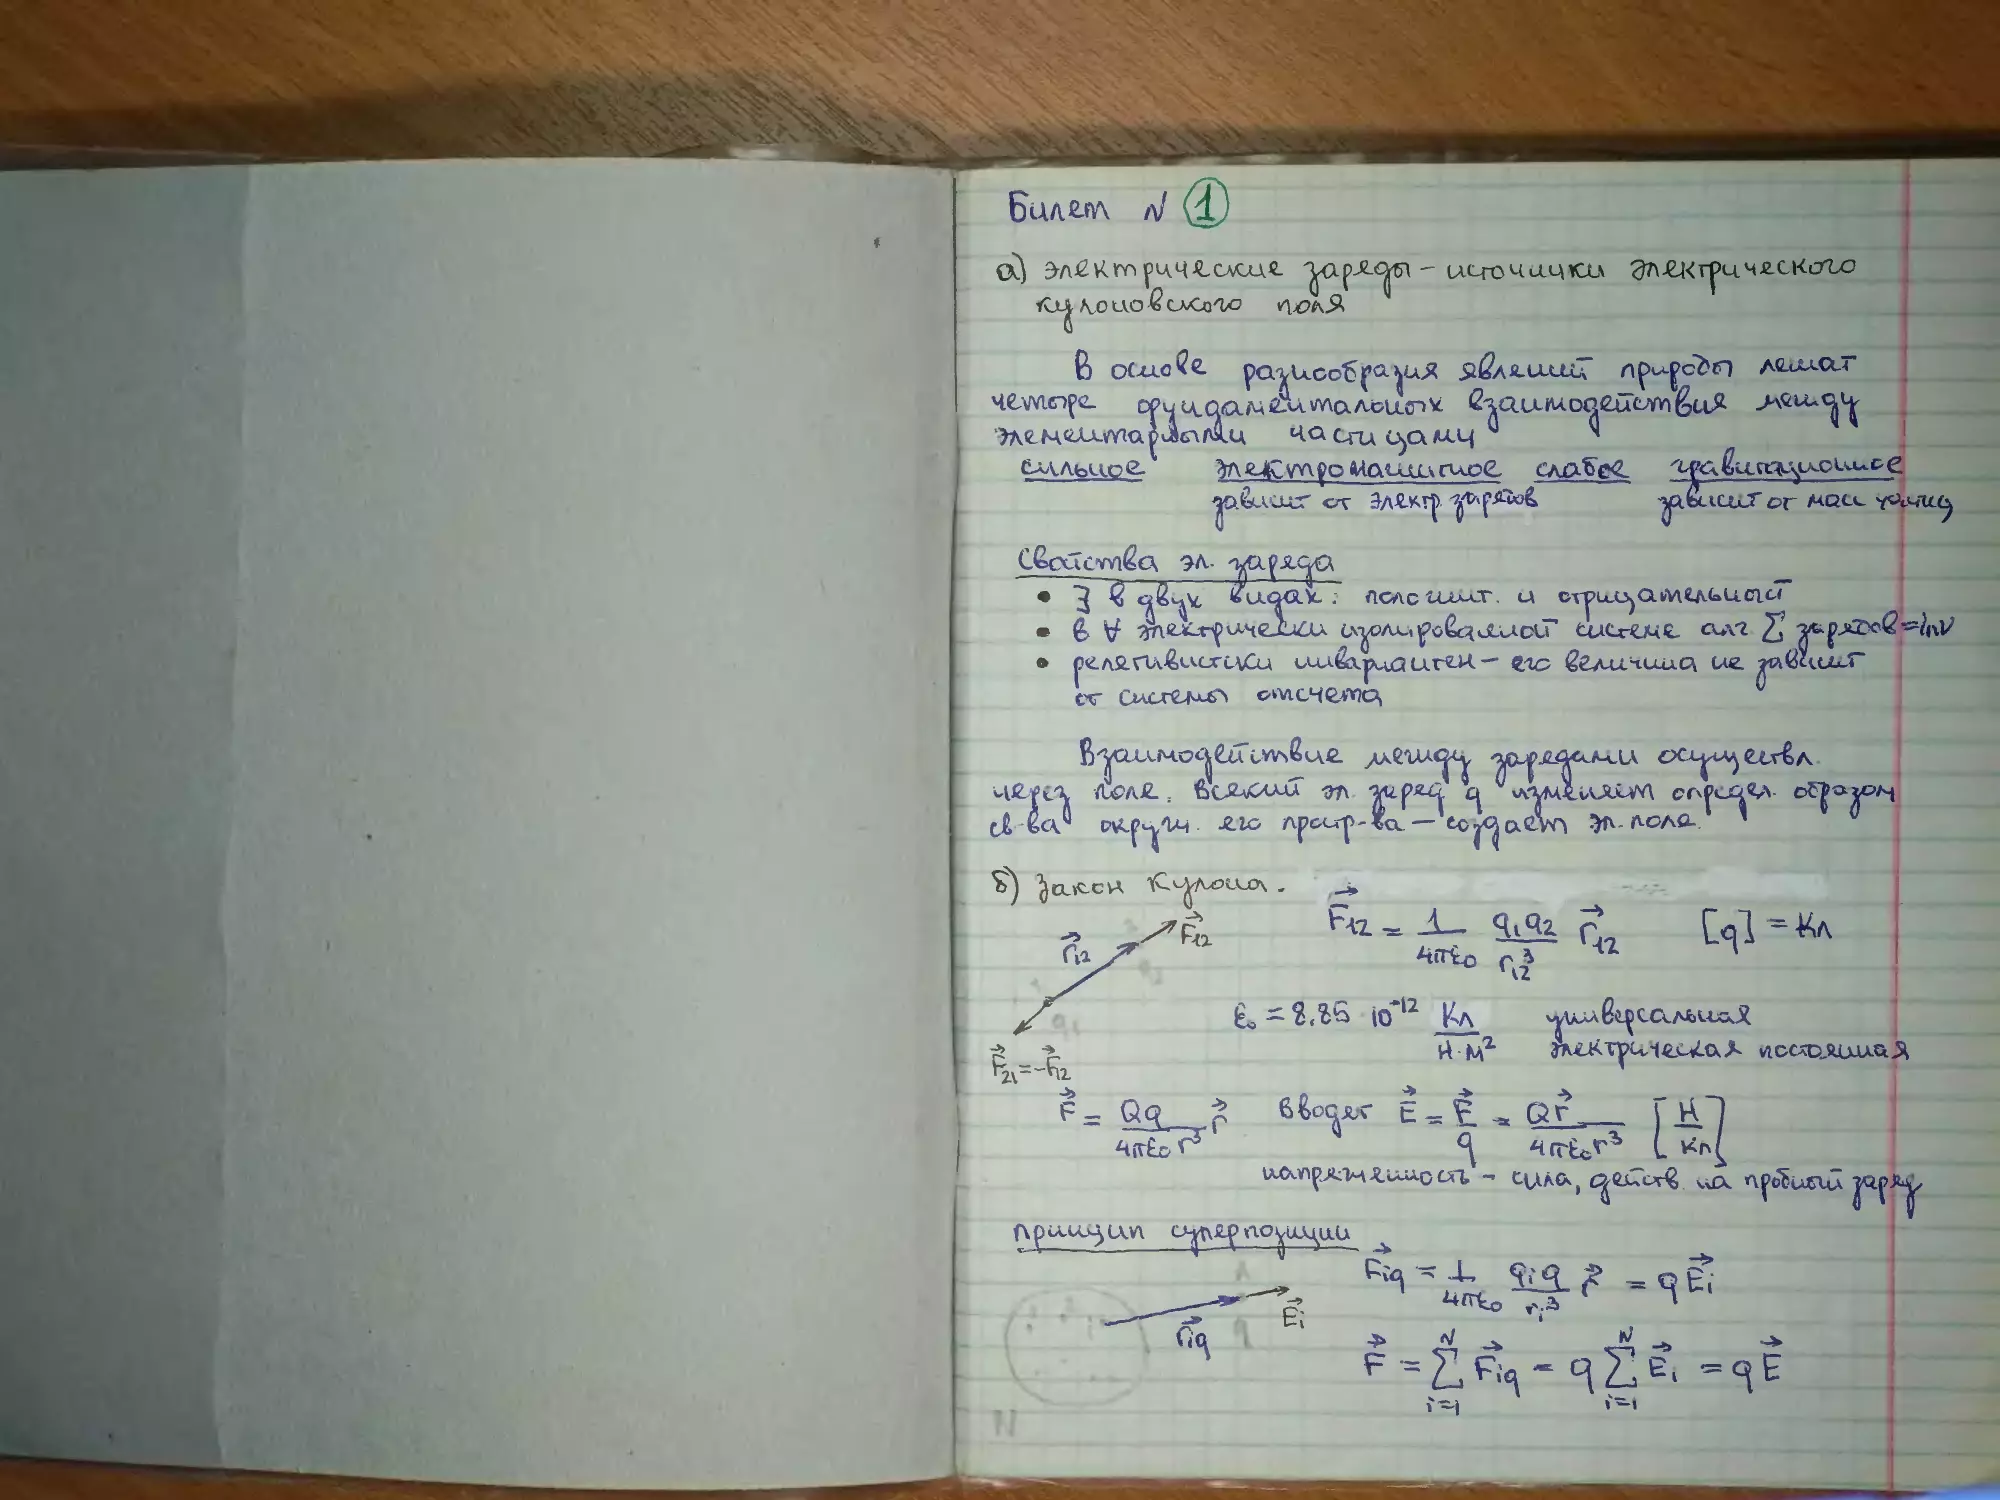 Билет N 1
а) электрические заряды – источники электрического
кулоновского поля
В основе разнообразия явлений природы лежат
четыре фундаментальных взаимодействия между
элементарными частицами
сильное электромагнитное слабое гравитационное
зависит от электр. зарядов зависит от масс частиц
Свойства эл. заряда
• ∃ в двух видах: положит. и отрицательный
• в ∀ электрически изолированной системе алг. Σ зарядов = inv
• релятивистски инвариантен – его величина не зависит
от системы отсчета
Взаимодействие между зарядами осуществл.
через поле. Всякий эл. заряд q изменяет определ. образом
св-ва окруж. его простр-ва – создаёт эл. поле.
б) Закон Кулона.
F⃗12 = 1/(4πε0) q1q2/r12³ r⃗12 [q] = Кл
r⃗12 F⃗12
q2
q1
F⃗21 = –F⃗12
ε0 = 8,85 10⁻¹² Кл/(Н·м²) универсальная
электрическая постоянная
F⃗ = Qq/(4πε0r³) r⃗ Вводят E⃗ = F⃗/q = Qr⃗/(4πε0r³) [Н/Кл]
напряженность – сила, действ. на пробный заряд
принцип суперпозиции
F⃗iq = 1/(4πε0) qiq/ri³ r⃗ = qE⃗i
r⃗iq E⃗i
A
q
N
F⃗ = Σ(i=1..N) F⃗iq = q Σ(i=1..N) E⃗i = qE⃗